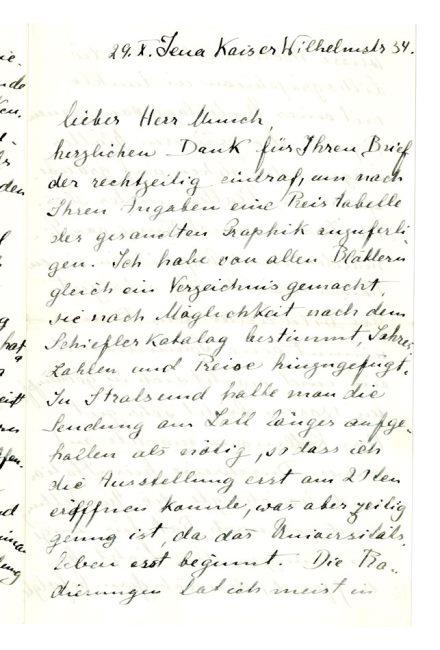 29. X. Jena Kaiser Wilhelmstr 34.
lieber Herr Munch,
herzlichen Dank für Ihren Brief
der rechtzeitig eintraf, um nach
Ihren Angaben eine Preistabelle
der gesandten Graphik anzuferti-
gen. Ich habe von allen Blättern
gleich ein Verzeichnis gemacht,
sie nach Möglichkeit nach dem
Schiefler Katalog bestimmt, Jahres
zahlen und Preise hinzugefügt.
In Stralsund hatte man die
Sendung am Zoll länger aufge-
halten als nötig, so dass ich
die Ausstellung erst am
eröffnen konnte, was aber zeitig
genug ist, da das Universitäts
leben erst beginnt. Die Ra-
dierungen hat ich meist in